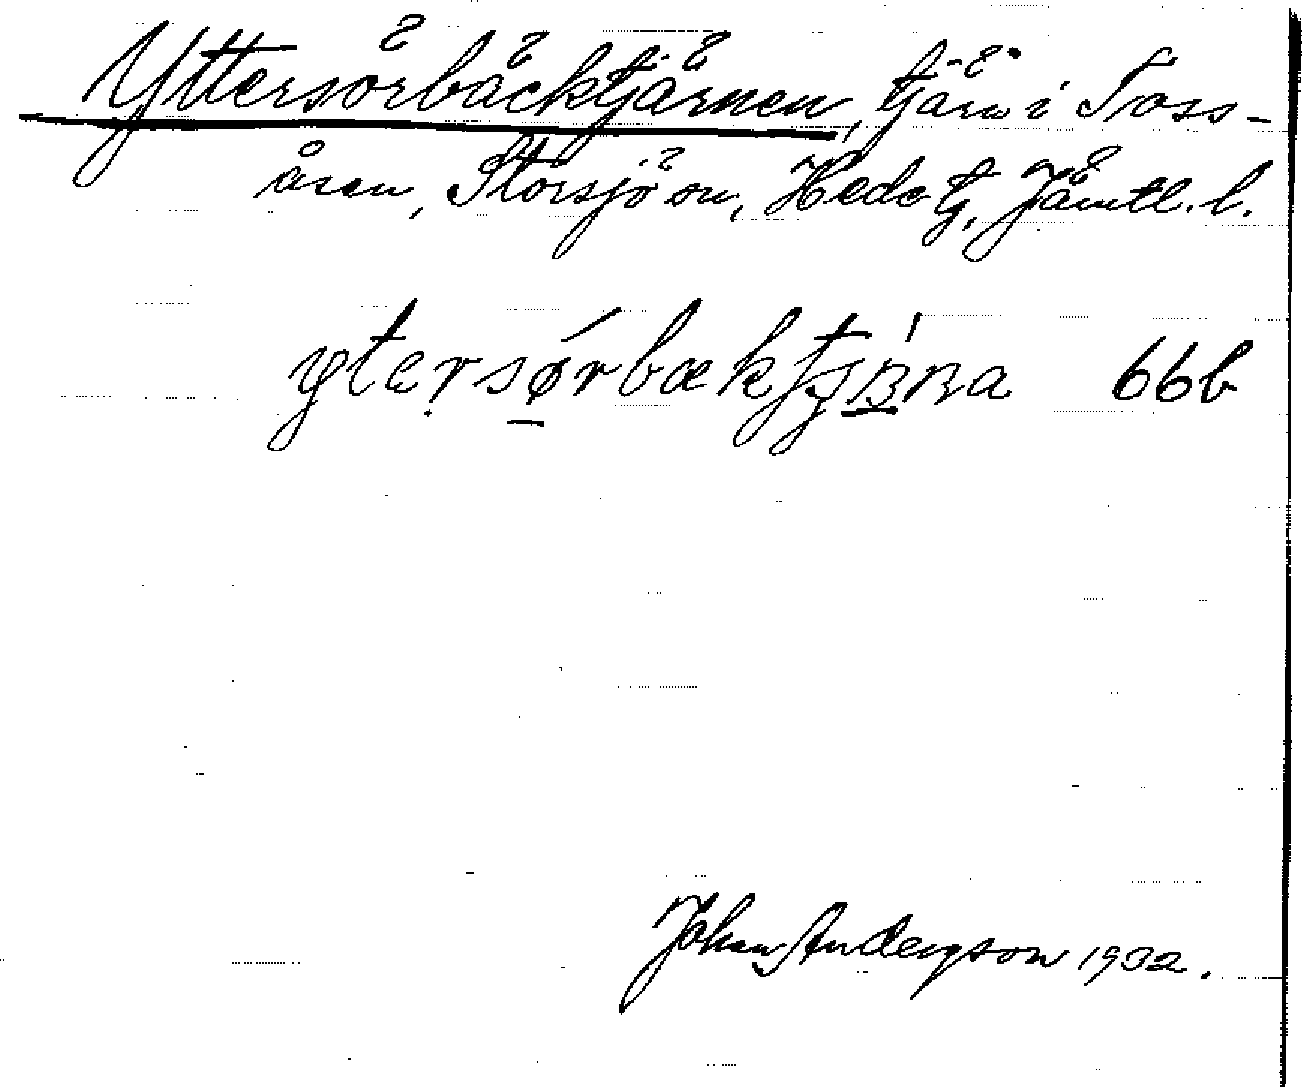 Yttersörbäcktjärnen, tjärn i Toss-
åsen, Storsjö sn, Hede tg, Jämtl. l.
ytersørbæktjønna 66b
Johan Andersson 1932.